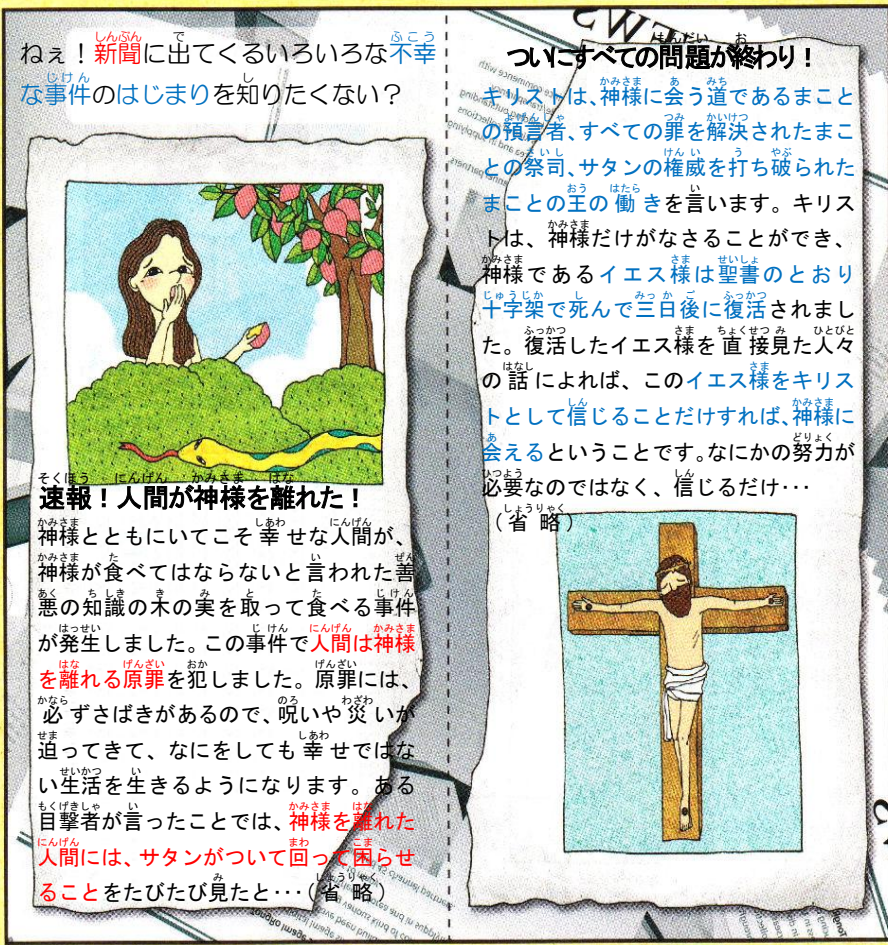 ねぇ！新聞に出てくるいろいろな不幸
な事件のはじまりを知りたくない？
速報！人間が神様を離れた！
神様とともにいてこそ幸せな人間が、
神様が食べてはならないと言われた善
悪の知識の木の実を取って食べる事件
が発生しました。この事件で人間は神様
を離れる原罪を犯しました。原罪には、
必ずさばきがあるので、呪いや災いが
迫ってきて、なにをしても幸せではな
い生活を生きるようになります。ある
目撃者が言ったことでは、神様を離れた
人間には、サタンがついて回って困らせ
ることをたびたび見たと･･･（省略）
ついにすべての問題が終わり！
キリストは、神様に会う道であるまこと
の預言者、すべての罪を解決されたまこ
との祭司、サタンの権威を打ち破られた
まことの王の働きを言います。キリス
トは、神様だけがなさることができ、
神様であるイエス様は聖書のとおり
十字架で死んで三日後に復活されまし
た。復活したイエス様を直接見た人々
の話によれば、このイエス様をキリス
トとして信じることだけすれば、神様に
会えるということです。なにかの努力が
必要なのではなく、信じるだけ･･･
（省略）